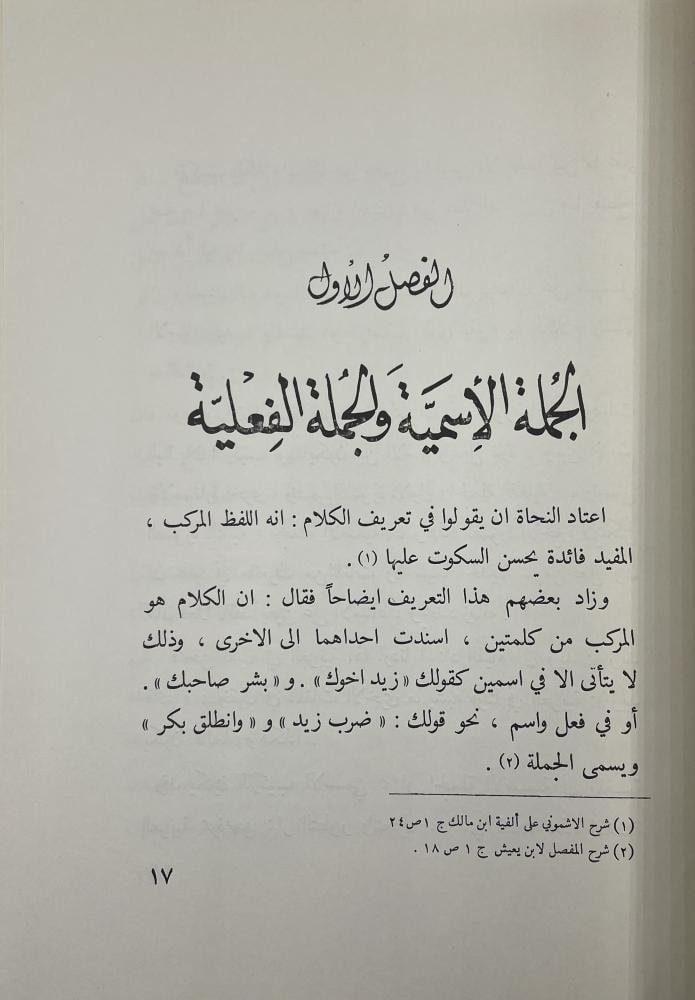 الفصلُ الأوُل
الجُملة الأِسميَّة وَالجُملة الفِعْليّة
اعتاد النحاة ان يقولوا في تعريف الكلام : انه اللفظ المركب ،
المفيد فائدة يحسن السكوت عليها (١) .
وزاد بعضهم هذا التعريف ايضاحاً فقال : ان الكلام هو
المركب من كلمتين ، اسندت احداهما الى الاخرى ، وذلك
لا يتأتّى الا في اسمين كقولك « زيد اخوك » . و « بشر صاحبك » .
أو في فعل واسم ، نحو قولك : « ضرب زيد » و « وانطلق بكر »
ويسمى الجملة (٢) .
(١) شرح الاشموني على ألفية ابن مالك ج ١ ص ٢٤
(٢) شرح المفصل لابن يعيش ج ١ ص ١٨ .
١٧